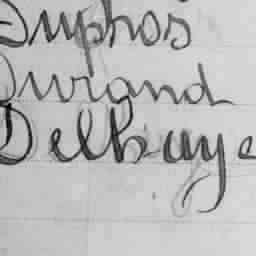 Duphos
Durand
Delhaye